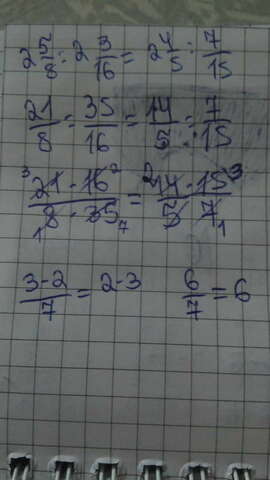 2 5/8 : 2 3/16 = 2 4/5 : 7/15
21/8 : 35/16 = 14/5 : 7/15
³21 · 16² / ₁8 · 35₇ = ²14 · 15³ / 5 · 7₁
3 · 2 / 7 = 2 · 3 6/7 = 6